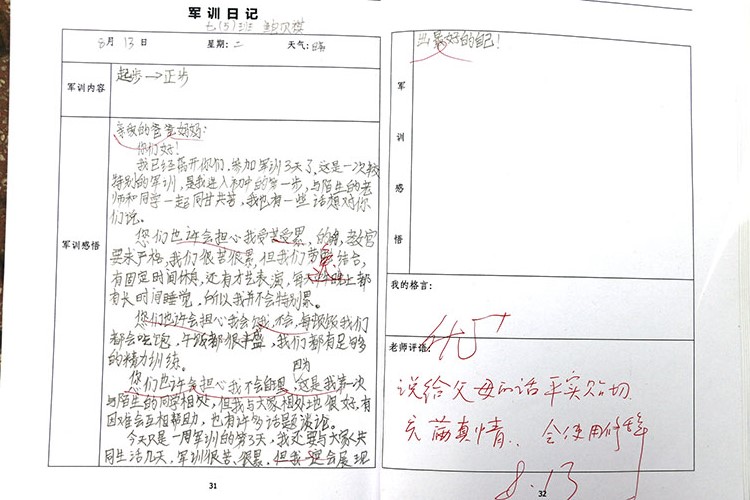 军训日记
七(5)班
8月13日 星期:二 天气:晴
军训内容
起步→正步
军训感悟
亲爱的爸爸妈妈:
你们好!
我已经离开你们,参加军训3天了,这是一次较
特别的军训,是我进入初中的第一步,与陌生的老
师和同学一起同甘共苦,我也有一些话想对你
们说。
您们也许会担心我受苦受累,的确,教官
要求严格,我们很苦很累,但我们劳逸结合,
有固定时间休息,还有才艺表演,每天晚上都
有长时间睡觉,所以我并不会特别累。
您们也许会担心我会饿,不会,每顿饭我们
都会吃饱,午饭都很丰盛,我们都有足够
的精力训练。
您们也许会担心我不会自理,因为这是我第一次
与陌生的同学相处,但我与大家相处地很好,有
困难会互相帮助,也有许多话题谈论。
今天只是一周军训的第3天,我还要与大家共
同生活几天,军训很苦、很累,但我一定会展现
31
出最好的自己!
军训感悟
我的格言:
老师评语:
优+
说给父母的话平实贴切
充满真情,会使用修辞
8.13
32